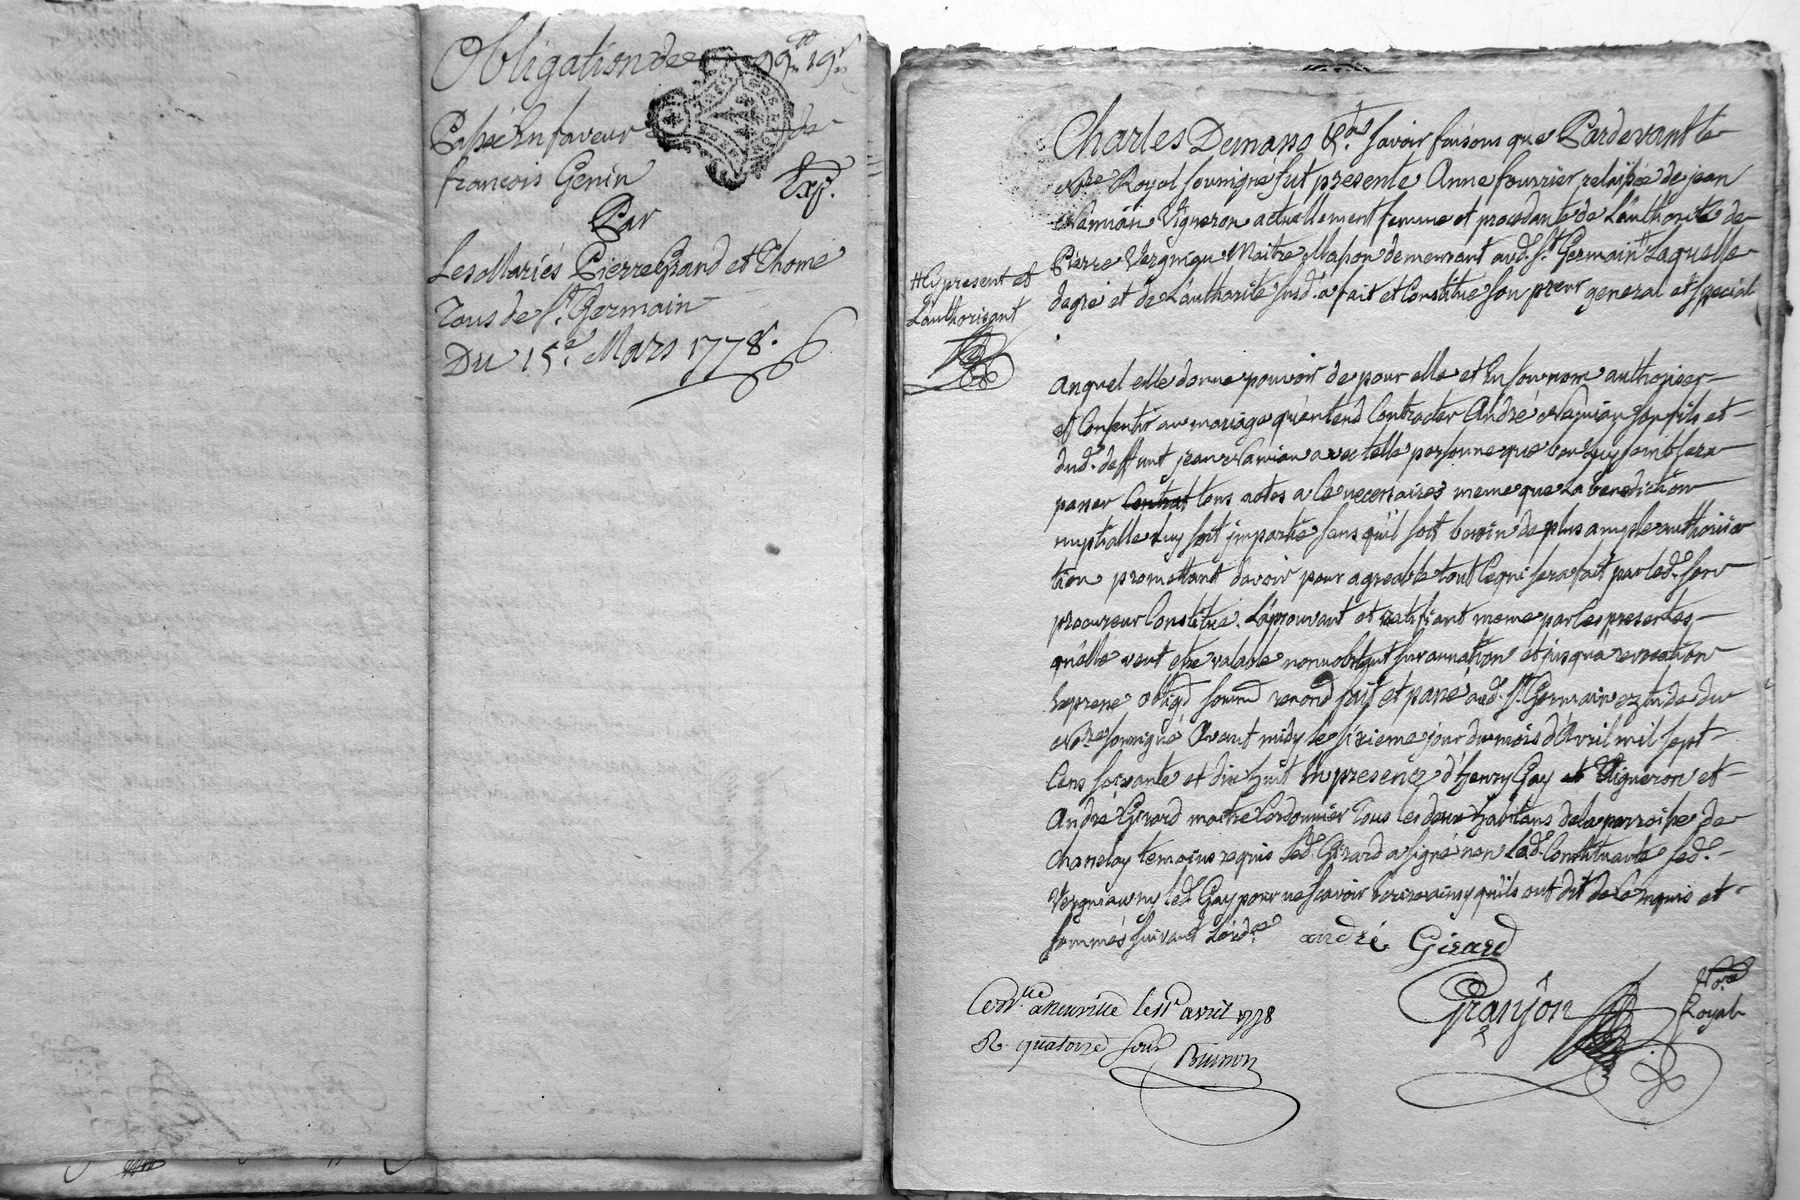 Obligation de 99ᵗᵗ 19ˢ
Passé En faveur de
francois Genin
Par
Les Mariés Pierre Grand et Thomé
Tous de St. Germain
Du 15e. Mars 1778.
Charles Dumas savoir faisons que Pardevant le
Nore Royal soussigné fut presente Anne fourrier relaissée de jean
Namian Vigneron actuellement femme et procedante de L'authorité de
Pierre Vergniau Maitre Masson demeurant aud. St. Germain # Laquelle
# Cy present et
L'authorisant
degré et de L'authorité susd. a fait et Constitué son procr general et special
auquel elle donne pouvoir de pour elle et En son nom authoriser
et Consentir au mariage qu'entend Contracter André Namian son fils et
dud. deffunt jean Namian avec telle personne que bon Luy semblera
passer tous actes a Ce necessaires meme que La benediction
nuptialle Luy soit impartie sans qu'il soit besoin de plus ample authorisa
tion promettant d'avoir pour agreable tout Ce qui sera fait par led. sieur
procureur Constitué. L'aprouvant et ratifiant meme par Les presentes
qu'elle veut etre valable nonnobstant surannation et jusqua revocation
obligd soumd renond fait et passé aud. St. Germain etude du
Nore soussigné Avant midy Le sixieme jour du mois d'Avril mil sept
Cens soixante et dix huit En presence d'henry Gay Vigneron et
André Girard maitre Cordonnier Tous les deux habitans de la parroisse de
temoins requis Led. Girard a signé non Lad. Constituante Led.
Vergniau ny led. Gay pour ne scavoir Ecrire ainsy qu'ils ont dit de Ce Enquis et
sommés suivant L'ordce
andré Girard
Granjon Nore
Royal
Conlle a neuville le 11 avril 1778
R. quatorze sous